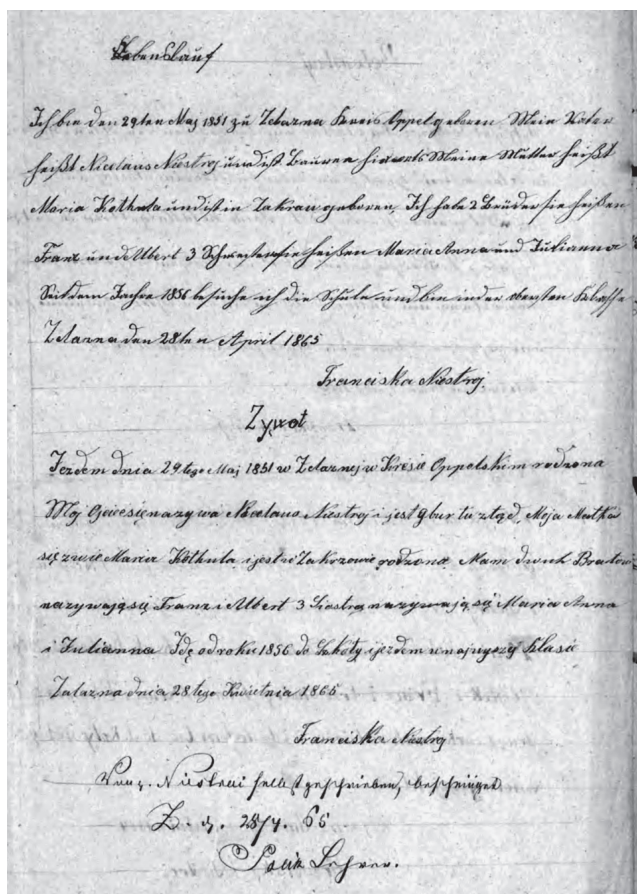 Lebenslauf
Ich bin den 29ten Maj 1851 zu Zelazna Kreis Oppeln geboren Mein Vater
heißt Nicolaus Niestroj und ist Bauer hierorts Meine Mutter heißt
Maria Kothula und ist in Zakrau geboren, Ich habe 2 Brüder sie heißen
Franz und Albert 3 Schwestern sie heißen Maria Anna und Julianna
Seit dem Jahre 1856 besuche ich die Schule und bin in der obersten Klasse
Zelazna den 28ten April 1865
Franciska Niestroj.
Zywot
Jezdem dnia 29tego Maj 1851 w Zelaznej w Kresie Oppelskim rodzona
Moj Ojciec się nazywa Nicolaus Niestroj i jest gbur tu ztąd, Moja Matka
się zwie Maria Kothula i jest w Zakrzowie rodzona Mam dwuch Bratow
nazywają się Franz i Albert 3 Siostrą nazywają są Maria Anna
i Julianna Idę od roku 1856 do Szkoły i jezdem w najwyszy Klasie
Zalazna dnia 28tego Kwietnia 1865
Franciska Niestroj
selbst geschrieben, bescheiniget
Z. d. 28/4. 65
Lehrer.